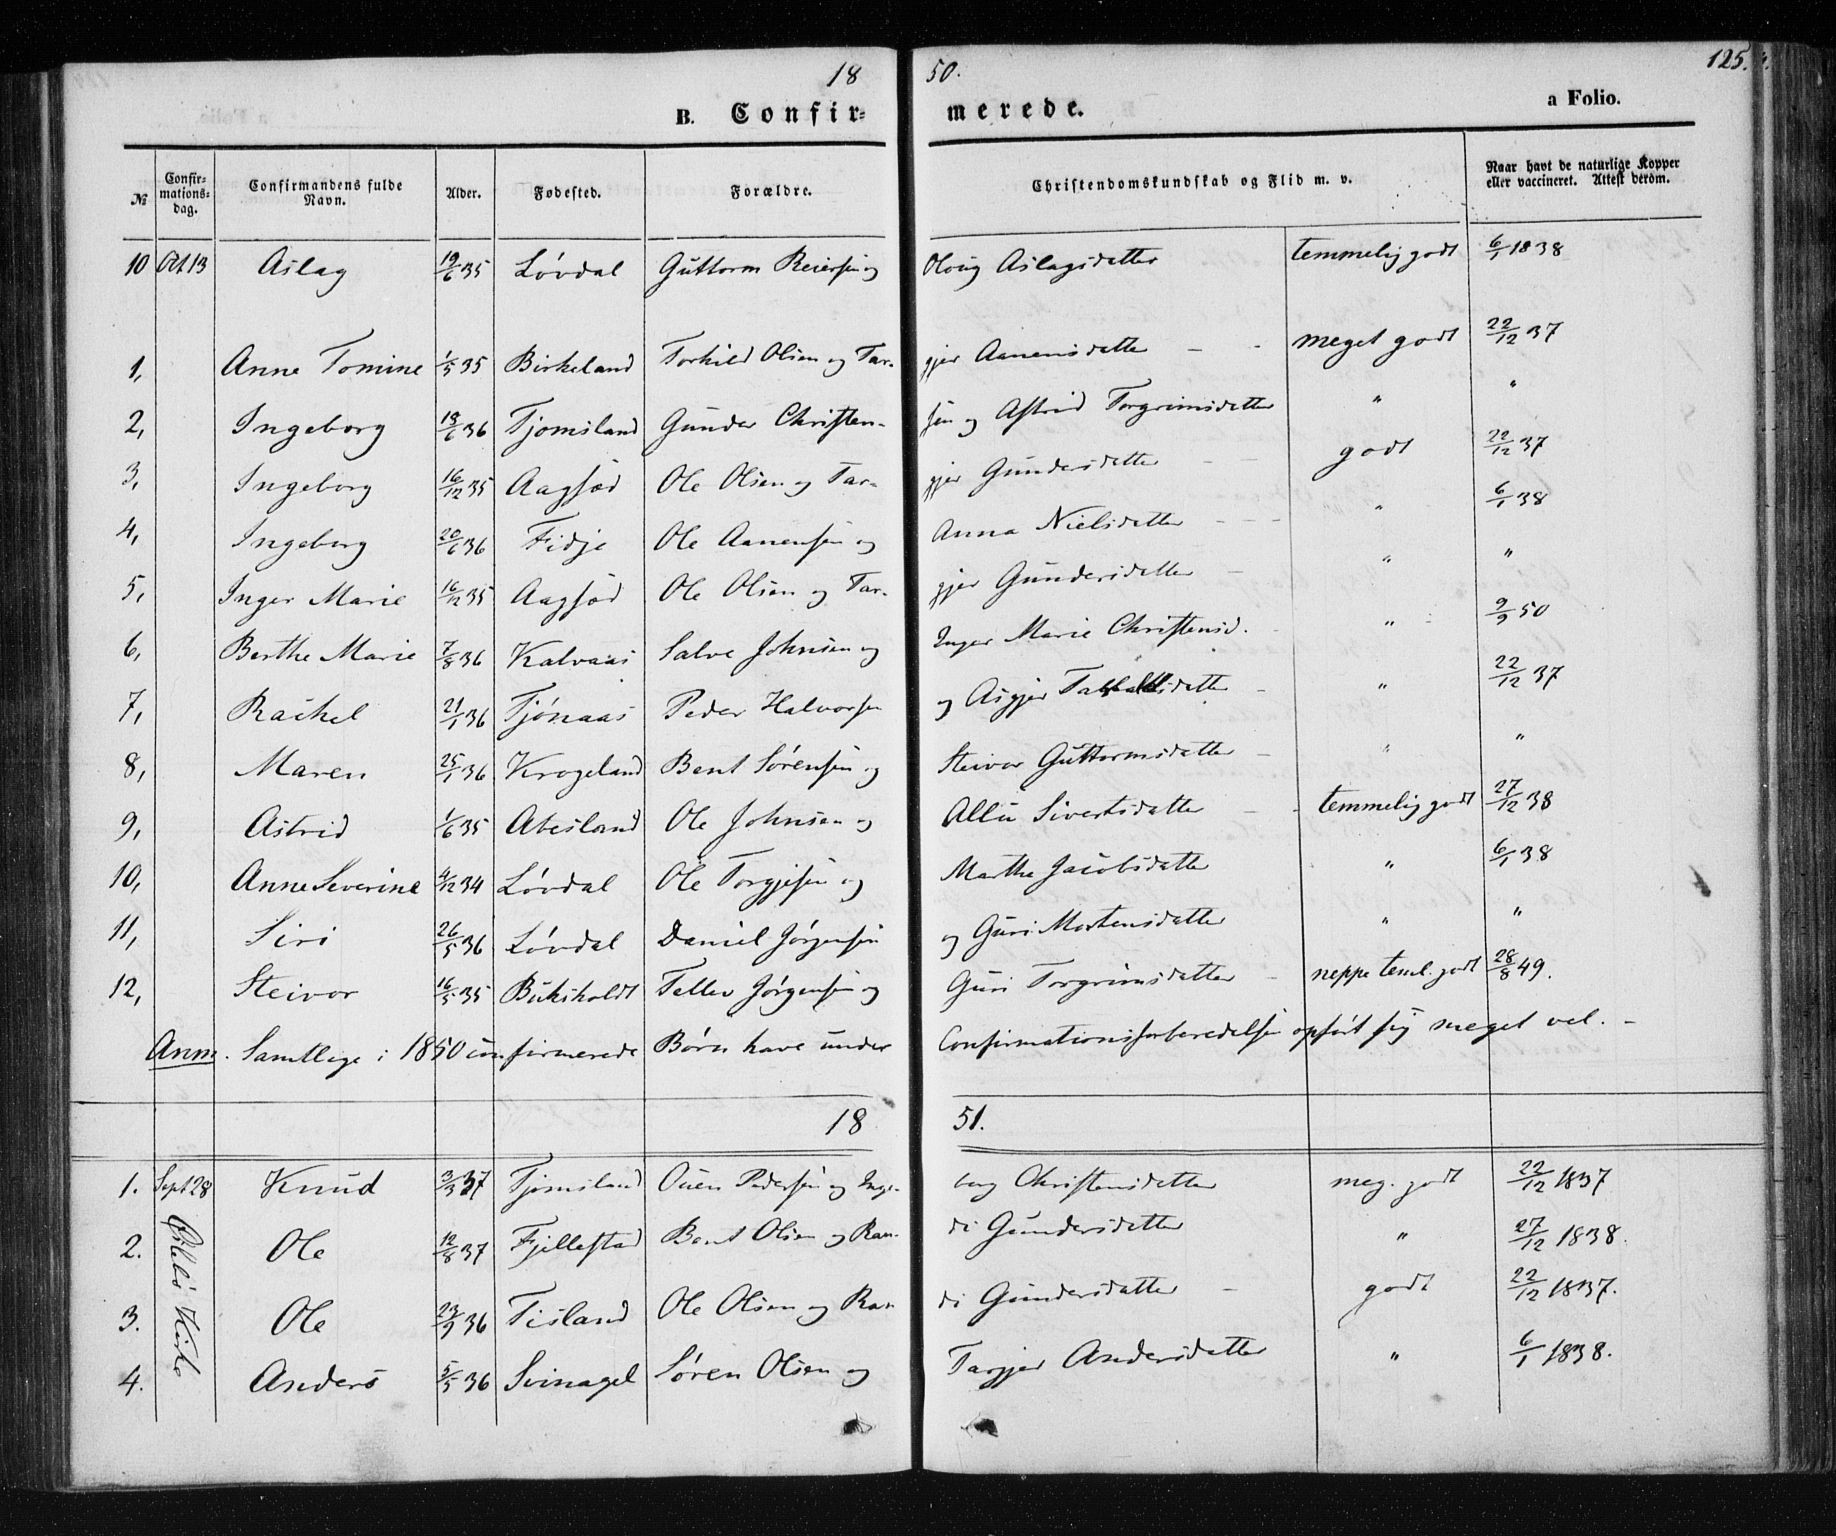 18 50. 125.
B. Confirmerede. a Folio.
№ Confirmationsdag. Confirmandens fulde Navn. Alder. Fødested. Forældre. Christendomskundskab og Flid m. v. Naar havt de naturlige Kopper eller vaccineret. Attest derom.
10 Oct 13 Aslag 19/6 35 Lóvdal Guttorm Reiersen og Oloug Aslagsdatter temmelig godt 6/1 1838
1, Anne Tomine 1/5 35 Birkeland Torkild Olsen og Targjer Aanensdatter - - meget godt 22/12 37
2, Ingeborg 18/6 36 Tjomsland Gunder Christensen og Astrid Torgrimsdatter " "
3, Ingeborg 16/12 35 Aagsød Ole Olsen og Targjer Gundersdatter - - godt 22/12 37
4, Ingeborg 20/6 36 Fidje Ole Aanensen og Anna Nielsdatter - - - " 6/1 38
5, Inger Marie 16/12 35 Aagsød Ole Olsen og Targjer Gundersdatter - " "
6, Berthe Marie 7/8 36 Kalvaas Salve Johnsen og Inger Marie Christensd. - " 9/9 50
7, Rachel 21/1 36 Tjónaas Peder Halvorsen og Asgjer datter - " 22/12 37
8, Maren 25/1 36 Krogeland Bent Sórensen og Steivor Guttormsdatter - " "
9, Astrid 1/6 35 Atesland Ole Johnsen og Allu Sivertsdatter - - temmelig godt 27/12 38
10, Anne Severine 4/12 34 Lóvdal Ole Torgjesen og Marthe Jacobsdatter " 6/1 38
11, Siri 26/5 36 Lóvdal Daniel Jórgensen og Guri Mortensdatter " "
12, Steivor 16/5 35 Buksholdt Tellev Jórgensen og Guri Torgrimsdatter - neppe teml. godt 28/8 49.
Anm. Samtlige i 1850 confirmerede Børn have under Confirmationsforberedelsen opført sig meget vel. -
18 51.
1. Sept 28 Knud 3/3 37 Tjomsland Ouen Pedersen og Ingeborg Christensdatter meg. godt 22/12 1837
Øslebø Kirke
2. Ole 12/8 37 Fjellestad Bent Olsen og Randi Gundersdatter " 27/12 1838.
3. Ole 23/9 36 Tisland Ole Olsen og Randi Gundersdatter - godt 22/12 1837.
4. Anders 5/5 36 Svinagel Sóren Olsen og Targjer Andersdatter " 6/1 1838.